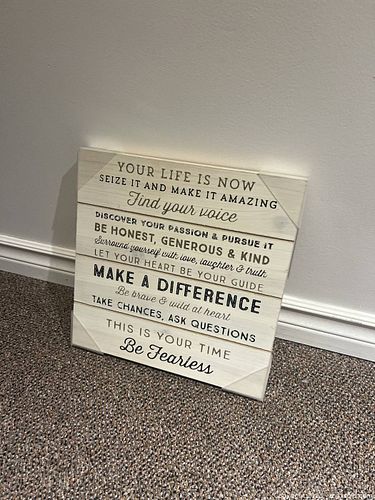 YOUR LIFE IS NOW
SEIZE IT AND MAKE IT AMAZING
Find your voice
DISCOVER YOUR PASSION & PURSUE IT
BE HONEST, GENEROUS & KIND
Surround yourself with love, laughter & truth
LET YOUR HEART BE YOUR GUIDE
MAKE A DIFFERENCE
Be brave & wild at heart
TAKE CHANCES, ASK QUESTIONS
THIS IS YOUR TIME
Be Fearless